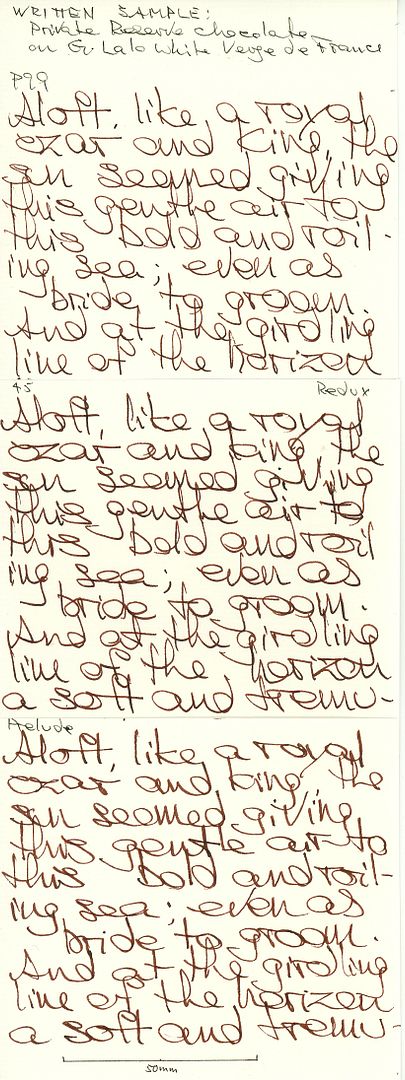 WRITTEN SAMPLE:
Private Reserve Chocolate
on G. Lalo White Verge de France
P99
Aloft, like a royal
czar and King, the
sun seemed giving
this gentle air to
this bold and roil-
ing sea; even as
bride to groom.
And at the girdling
line of the horizon
45 Redux
Aloft, like a royal
czar and king, the
sun seemed giving
this gentle air to
this bold and roil
ing sea; even as
bride to groom.
And at the girdling
line of the horizon
a soft and tremu-
Aloft, like a royal
czar and king, the
sun seemed giving
this gentle air to
this bold and roil-
ing sea; even as
bride to groom.
And at the girdling
line of the horizon
a soft and tremu-
50mm